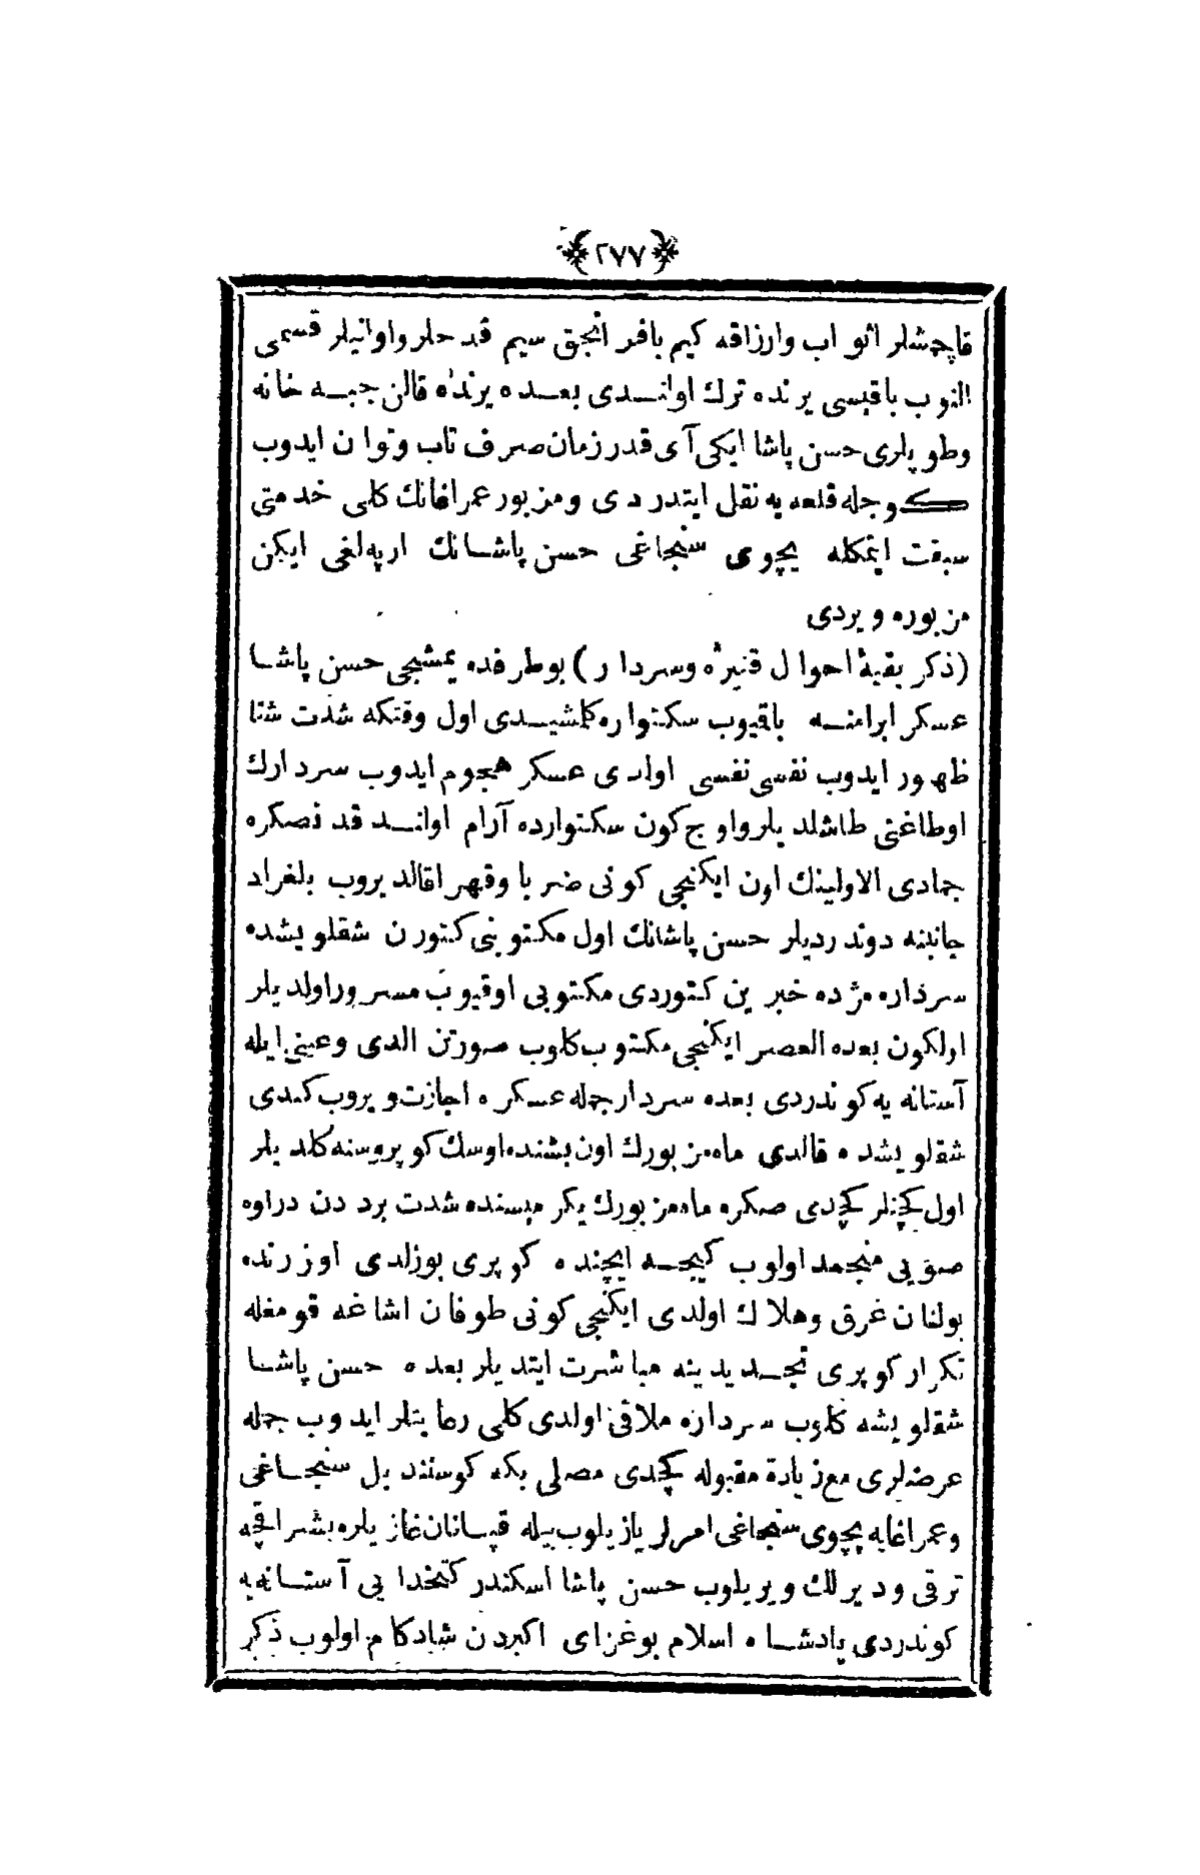 ﴿٢٧٧﴾
قاچمشلر اثواب وارزاقه كيم باقر انجق سيم قدحلر واوانيلر قسمى
النوب باقيسى يرنده ترك اولندى بعده يرنده قالن جبه خانه
وطوپلرى حسن پاشا ايكى آى قدر زمان صرف تاب وتوان ايدوب
كوجله قلعه يه نقل ايتدردى ومزبور عمراغانك كلى خدمتى
سبقت ايتمكله پچوى سنجاغى حسن پاشانك ارپه لغى ايكن
مزبوره ويردى
(ذكر بقيهٔ احوال قنيژه وسردار) بوطرفده يمشجى حسن پاشا
عسكر ابرامنه باقيوب سكتواره كلمشيدى اول وقتكه شدت شتا
ظهور ايدوب نفسى نفسى اولدى عسكر هجوم ايدوب سردارك
اوطاغنى طاشلديلر واوج كون سكتوارده آرام اولندقدنصكره
جمادى الاولينك اون ايكنجى كونى ضربا وقهرا قالديروب بلغراد
جانبنه دوندرديلر حسن پاشانك اول مكتوبنى كتورن شقلويشده
سرداره مژده خبرين كتوردى مكتوبى اوقيوب مسرور اولديلر
اولكون بعده العصر ايكنجى مكتوب كلوب صورتن الدى وعينى ايله
آستانه يه كوندردى بعده سردار جمله عسكره اجازت ويروب كندى
شقلويشده قالدى ماه مزبورك اون بشنده اوسك كوپروسنه كلديلر
اول كچنلر كچدى صكره ماه مزبورك يكرميسنده شدت برددن دراوه
صويى منجمد اولوب كيجه ايچنده كوپرى بوزلدى اوزرنده
بولنان غرق وهلاك اولدى ايكنجى كونى طوفان اشاغه قومغله
تكرار كوپرى تجديدينه مباشرت ايتديلر بعده حسن پاشا
شقلويشه كلوب سرداره ملاقى اولدى كلى رعايتلر ايدوب جمله
عرضلرى مع زيادة مقبوله كچدى مصلى بكه كوستنديل سنجاغى
وعمراغايه پچوى سنجاغى امرلر يازيلوب بيله قپانان غازيلره بشر اقچه
ترقى ودير لك ويريلوب حسن پاشا اسكندر كتخدايى آستانه يه
كوندردى پادشاه اسلام بوغزاى اكبردن شادكام اولوب ذكر